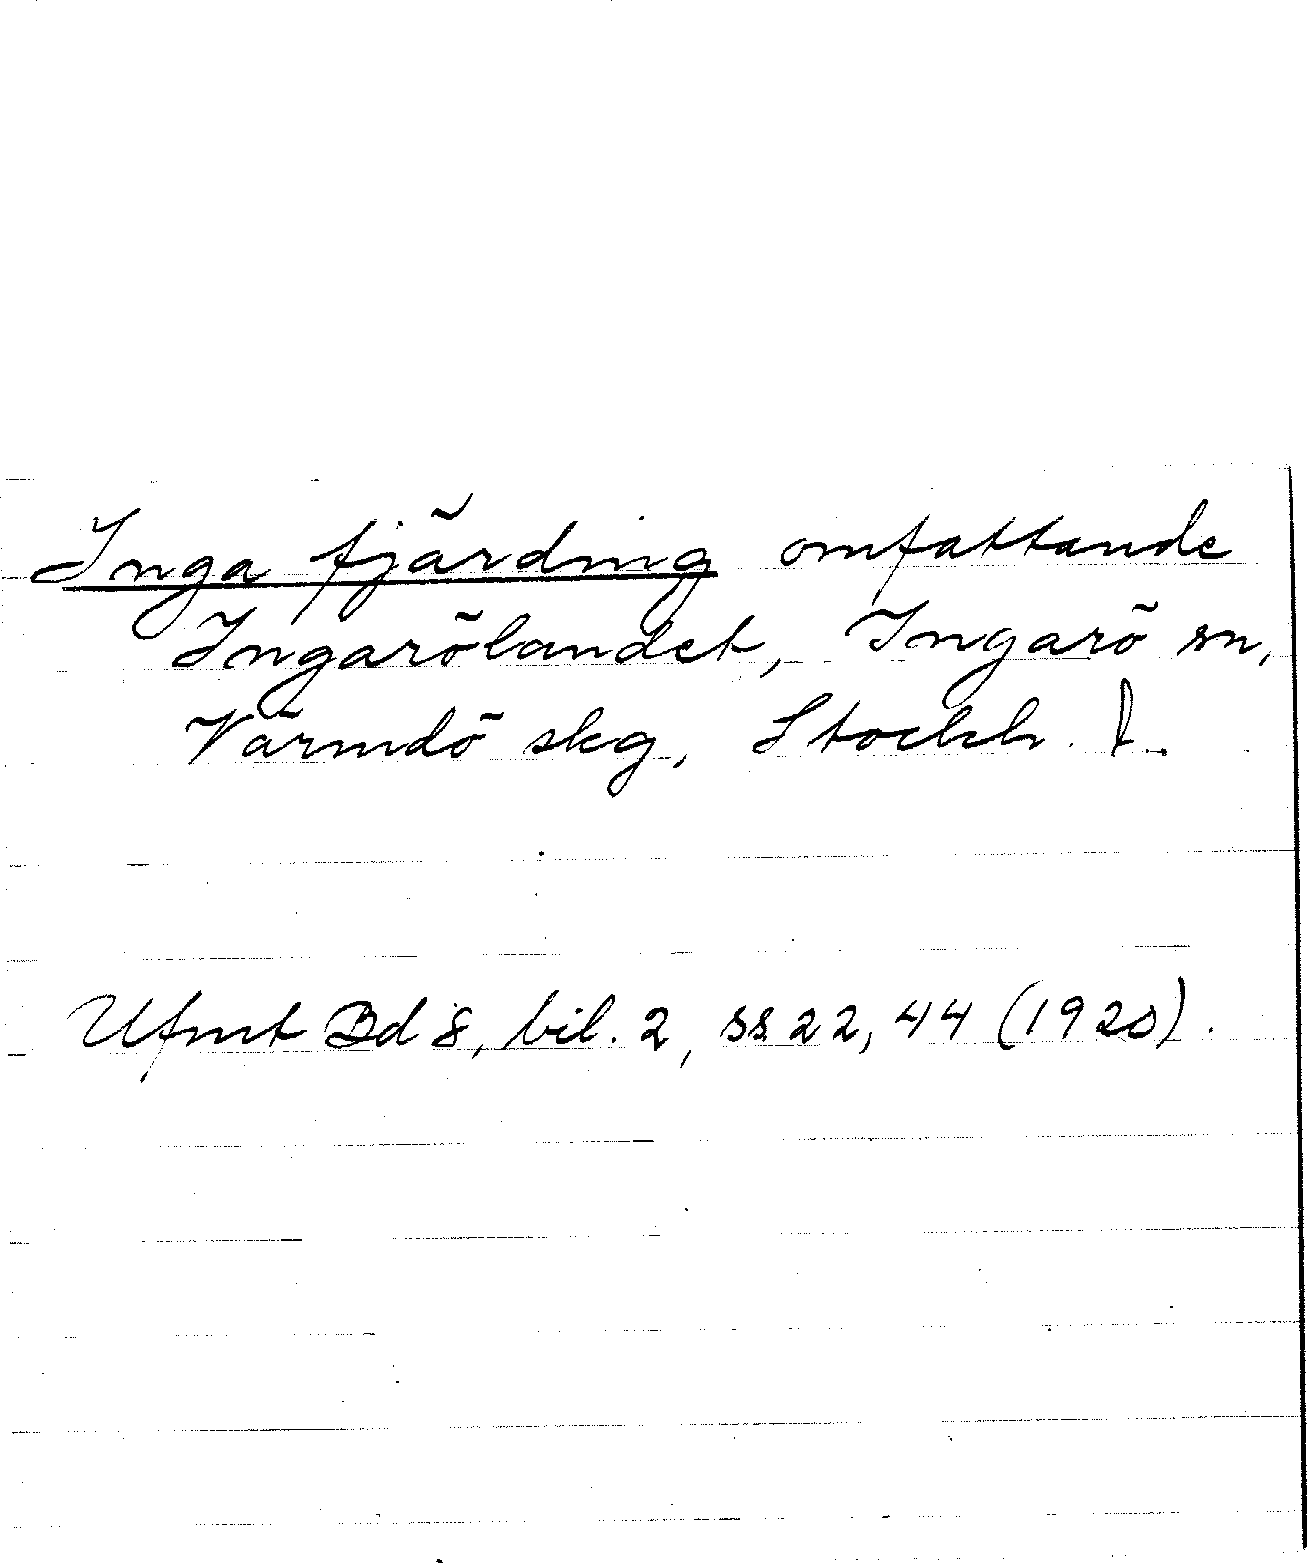 Inga fjärding omfattande
Ingarölandet, Ingarö sn,
Värmdö skg, Stockh. l.
Ufmt Bd 8, bil. 2, ss 22, 44 (1920).